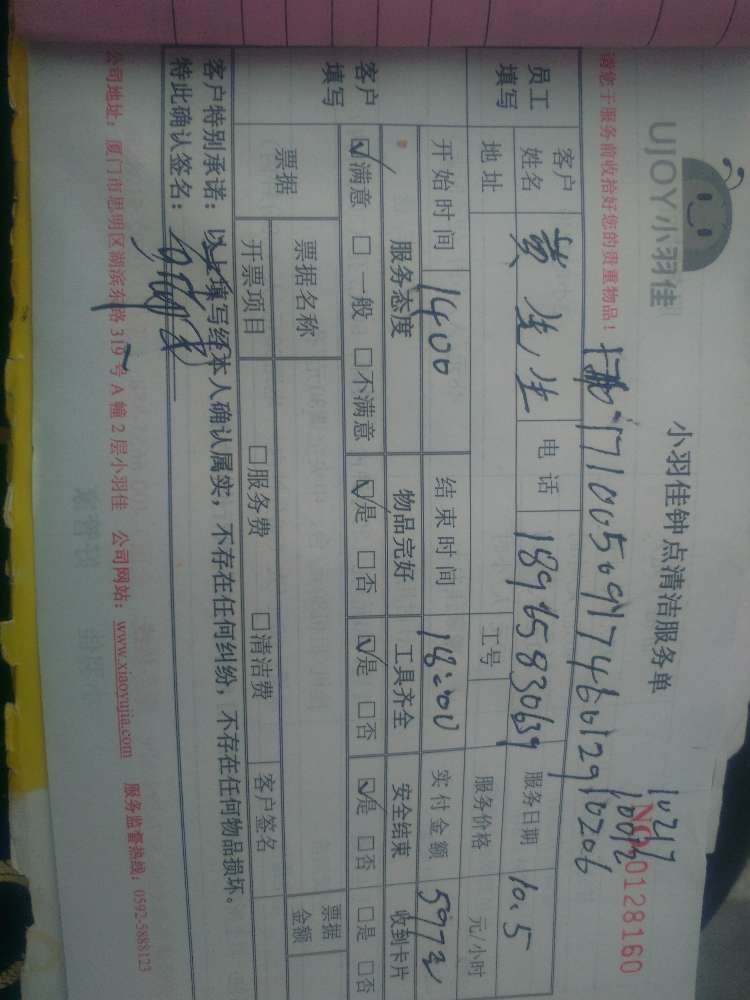 UJOY小羽佳
小羽佳钟点清洁服务单
NO 0128160
10217
10072
请您于服务前收拾好您的贵重物品！
171005091746012910206
员工填写
客户姓名 黄生生 电话 18965830639 服务日期 10.5
地址 工号 服务价格 元/小时
开始时间 1400 结束时间 18:00 实付金额 597元
客户填写
服务态度 物品完好 工具齐全 安全结束 收到卡片
☑满意 □一般 □不满意 ☑是 □否 ☑是 □否 ☑是 □否 □是 □否
票据 票据名称 票据金额
开票项目 □服务费 □清洁费 客户签名
客户特别承诺：以上填写经本人确认属实，不存在任何纠纷，不存在任何物品损坏。
特此确认签名：
公司地址：厦门市思明区湖滨东路319号A幢2层小羽佳 公司网站：www.xiaoyujia.com 服务监督热线：0592-5888123